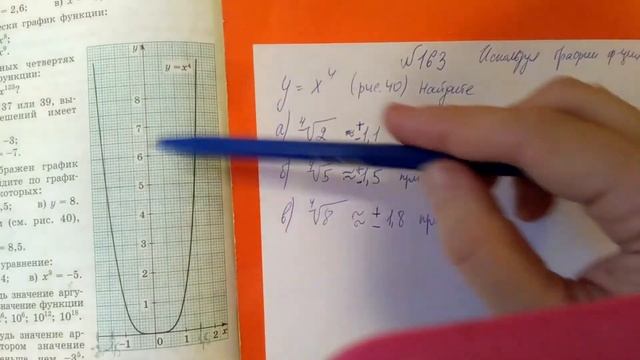 = 2,6; в) x
ески график функции:
x⁸;
x⁹.
ных четвертях
функции:
x¹²³?
37 или 39, вы-
ешений имеет
= −3;
= −7.
бражен график
йдите по графи-
которых:
,5; в) y = 8.
м (см. рис. 40),
= 8,5.
уравнение:
4; в) x⁹ = −5.
удь значение аргу-
значение функции
10⁶; 10¹²; 10¹⁸.
удь значение ар-
тором значение
y
y = x⁴
8
7
6
5
4
3
2
1
−1 0 1 2 x
№163 Используя график
y = x⁴ (рис. 40) Найдите
а) ⁴√2 ≈ ± 1,1
б) ⁴√5 ≈ ± 1,5 пр
в) ⁴√8 ≈ ± 1,8 пр